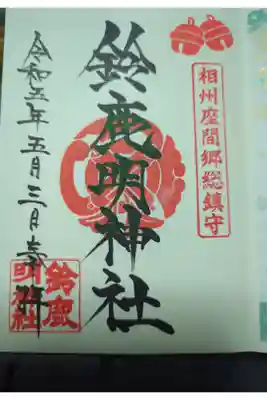 相州座間郷総鎮守
鈴鹿明神社
令和五年五月三日奉拝
鈴鹿
明神社